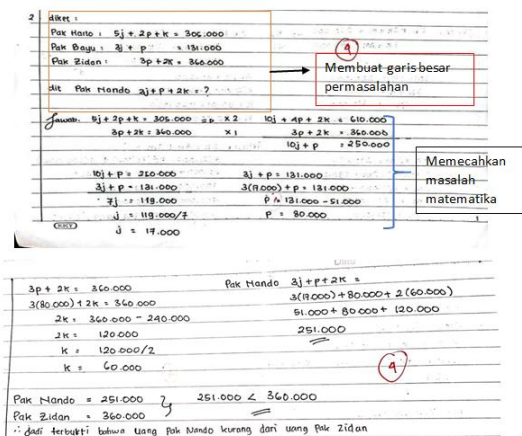 2 diket :
Pak Hario : 5j + 2p + k = 305.000
Pak Bayu : 3j + p = 131.000
Pak Zidan : 3p + 2k = 360.000
dit Pak Nando 3j + p + 2k = ?
4
Membuat garis besar
permasalahan
Jawab. 5j + 2p + k = 305.000 x 2 10j + 4p + 2k = 610.000
3p + 2k = 360.000 x 1 3p + 2k = 360.000
10j + p = 250.000
10j + p = 250.000 3j + p = 131.000
3j + p = 131.000 3(17.000) + p = 131.000
7j = 119.000 p = 131.000 - 51.000
j = 119.000/7 p = 80.000
j = 17.000
Memecahkan
masalah
matematika
3p + 2k = 360.000 Pak Nando 3j + p + 2k =
3(80.000) + 2k = 360.000 3(17.000) + 80.000 + 2(60.000)
2k = 360.000 - 240.000 51.000 + 80.000 + 120.000
2k = 120.000 251.000
k = 120.000/2
k = 60.000
4
Pak Nando = 251.000 } 251.000 < 360.000
Pak Zidan = 360.000
∴ Jadi terbukti bahwa uang Pak Nando kurang dari uang Pak Zidan